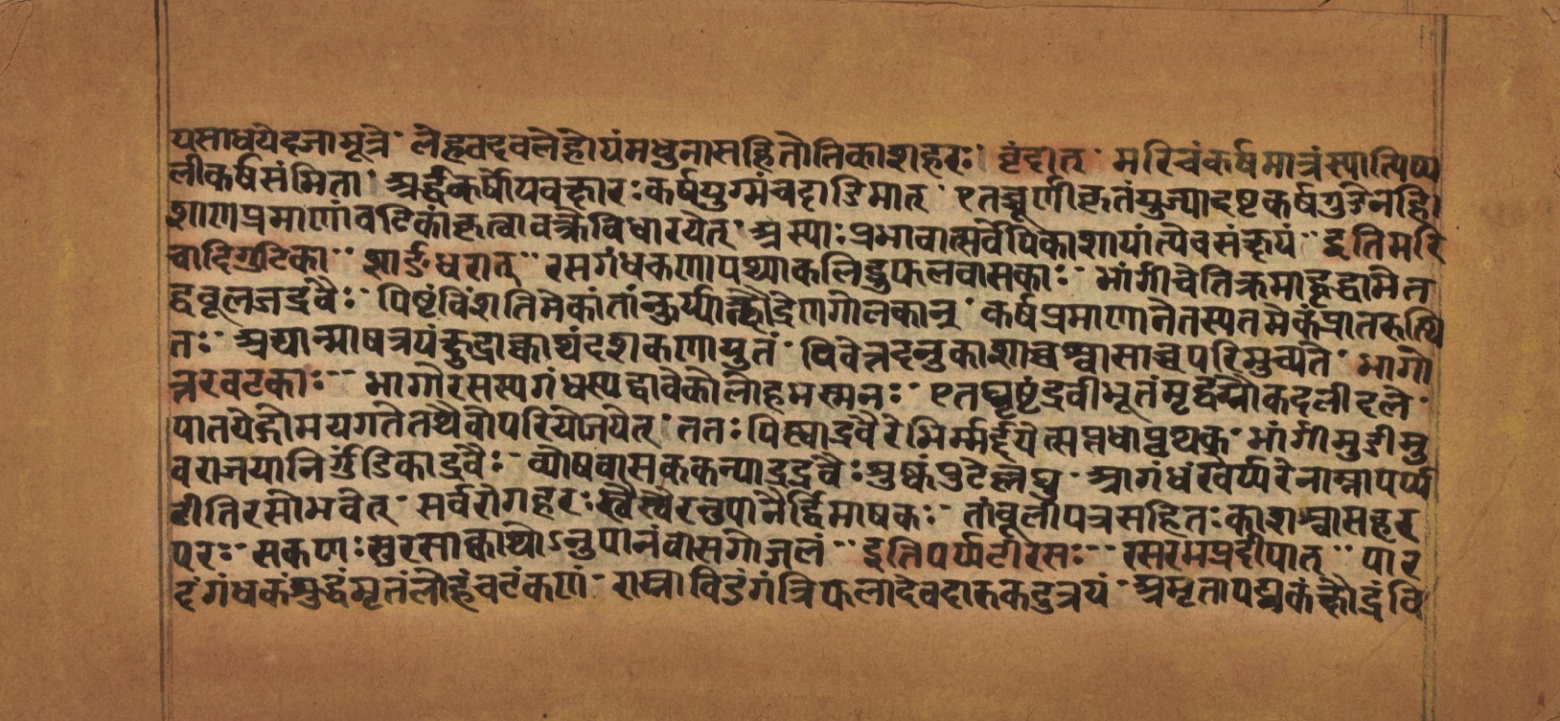 यसाधयेदजामूत्रे लेहवदवलेहोयंमधुनासहितोतिकाशहरः वृंदात् मरिचंकर्षमात्रंस्यात्पिप्प
लीकर्षसंमिता अर्द्धकर्षोयवक्षारःकर्षयुग्मंचदाडिमात् एतच्चूर्णीकृतंयुंज्यादष्टकर्षगुडेनहि
शाणप्रमाणांवटिकांकृत्वावक्त्रेविधारयेत् अस्याःप्रभावात्सर्वेपिकाशायांत्येवसंक्षयं इतिमरि
चादिगुटिका शार्ङधरात् रसगंधकणापथ्याकलिद्रुफलवासकाः भांर्गीचेतिक्रमाद्वृद्धामेत
द्बबूलजद्रवैः पिष्टंविंशतिमेकांतांन्कुर्य्यात्क्षौद्रेणगोलकान् कर्षप्रमाणानेतस्यतमेकंप्रातरुत्थि
तः अद्यान्माषत्रयंक्षुद्राक्वाथंदशकणायुतं पिवेत्तदनुकाशाच्चश्वासाच्चपरिमुच्यते भागो
त्तरवटकाः भागौरसस्यगंधस्यद्वावेकोलोहभस्मनः एतघृष्टंद्रवीभूतंमृद्वग्नौकदलीदले
पातयेद्गोमयगतेतथैवोपरियोजयेत् ततःपिष्ट्वाद्रवैरेभिर्म्मर्द्दयेत्सप्तधापृथक् भांर्गीमुंडीमु
वराजयानिर्गुंडिकाद्रवैः व्योषवासककन्याद्रद्रवैःशुष्कंपुटेल्लघु आगंधंखर्प्परेनाम्नापर्प्प
टीतिरसोभवेत् सर्वरोगहरःस्वैस्वैरनुपानैर्द्विमाषकः तांबूलीपत्रसहितःकाशश्वासहर
परः सकणःसुरसाक्वाथोऽनुपानंवासगोजलं इतिपर्प्पटीरसः रसरमप्रदीपात् पार
दंगंधकंशुद्धंमृतंलोहंचटंकणं रास्नाविडंगंत्रिफलादेवदारुकटुत्रयं अमृतापद्मकंक्षौद्रंवि